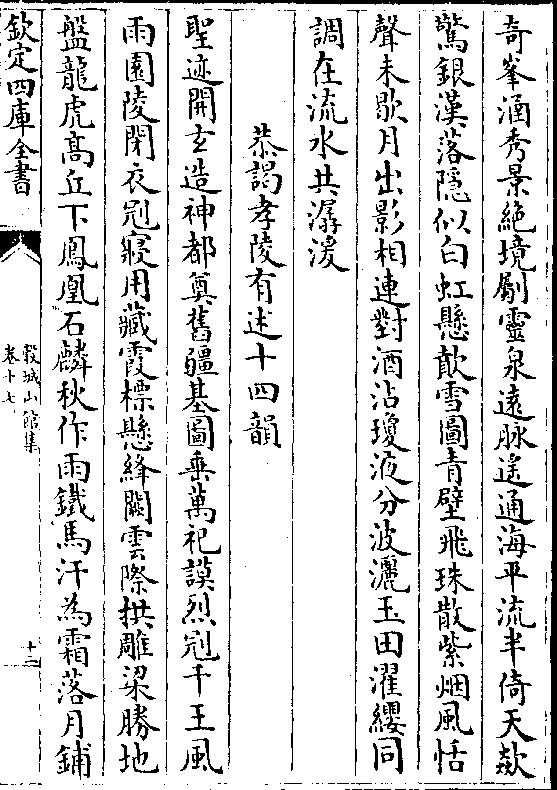 奇峯涵秀景絶境劚靈泉遠脉遥通海平流半倚天欻
驚銀漢落隠似白虹懸歕雪圖青壁飛珠散紫烟風恬
聲未歇月出影相連對酒沾瓊液分波灑玉田濯纓同
調在流水共潺湲
恭謁孝陵有述十四韻
聖迹開玄造神都奠舊疆基圖垂萬祀謨烈冠千王風
雨園陵閉衣冠寢用藏霞標懸絳闕雲際拱雕梁勝地
盤龍虎髙丘下鳳凰石麟秋作雨鐵馬汗為霜落月鋪
欽定四庫全書
榖城山館集
卷十七
十三